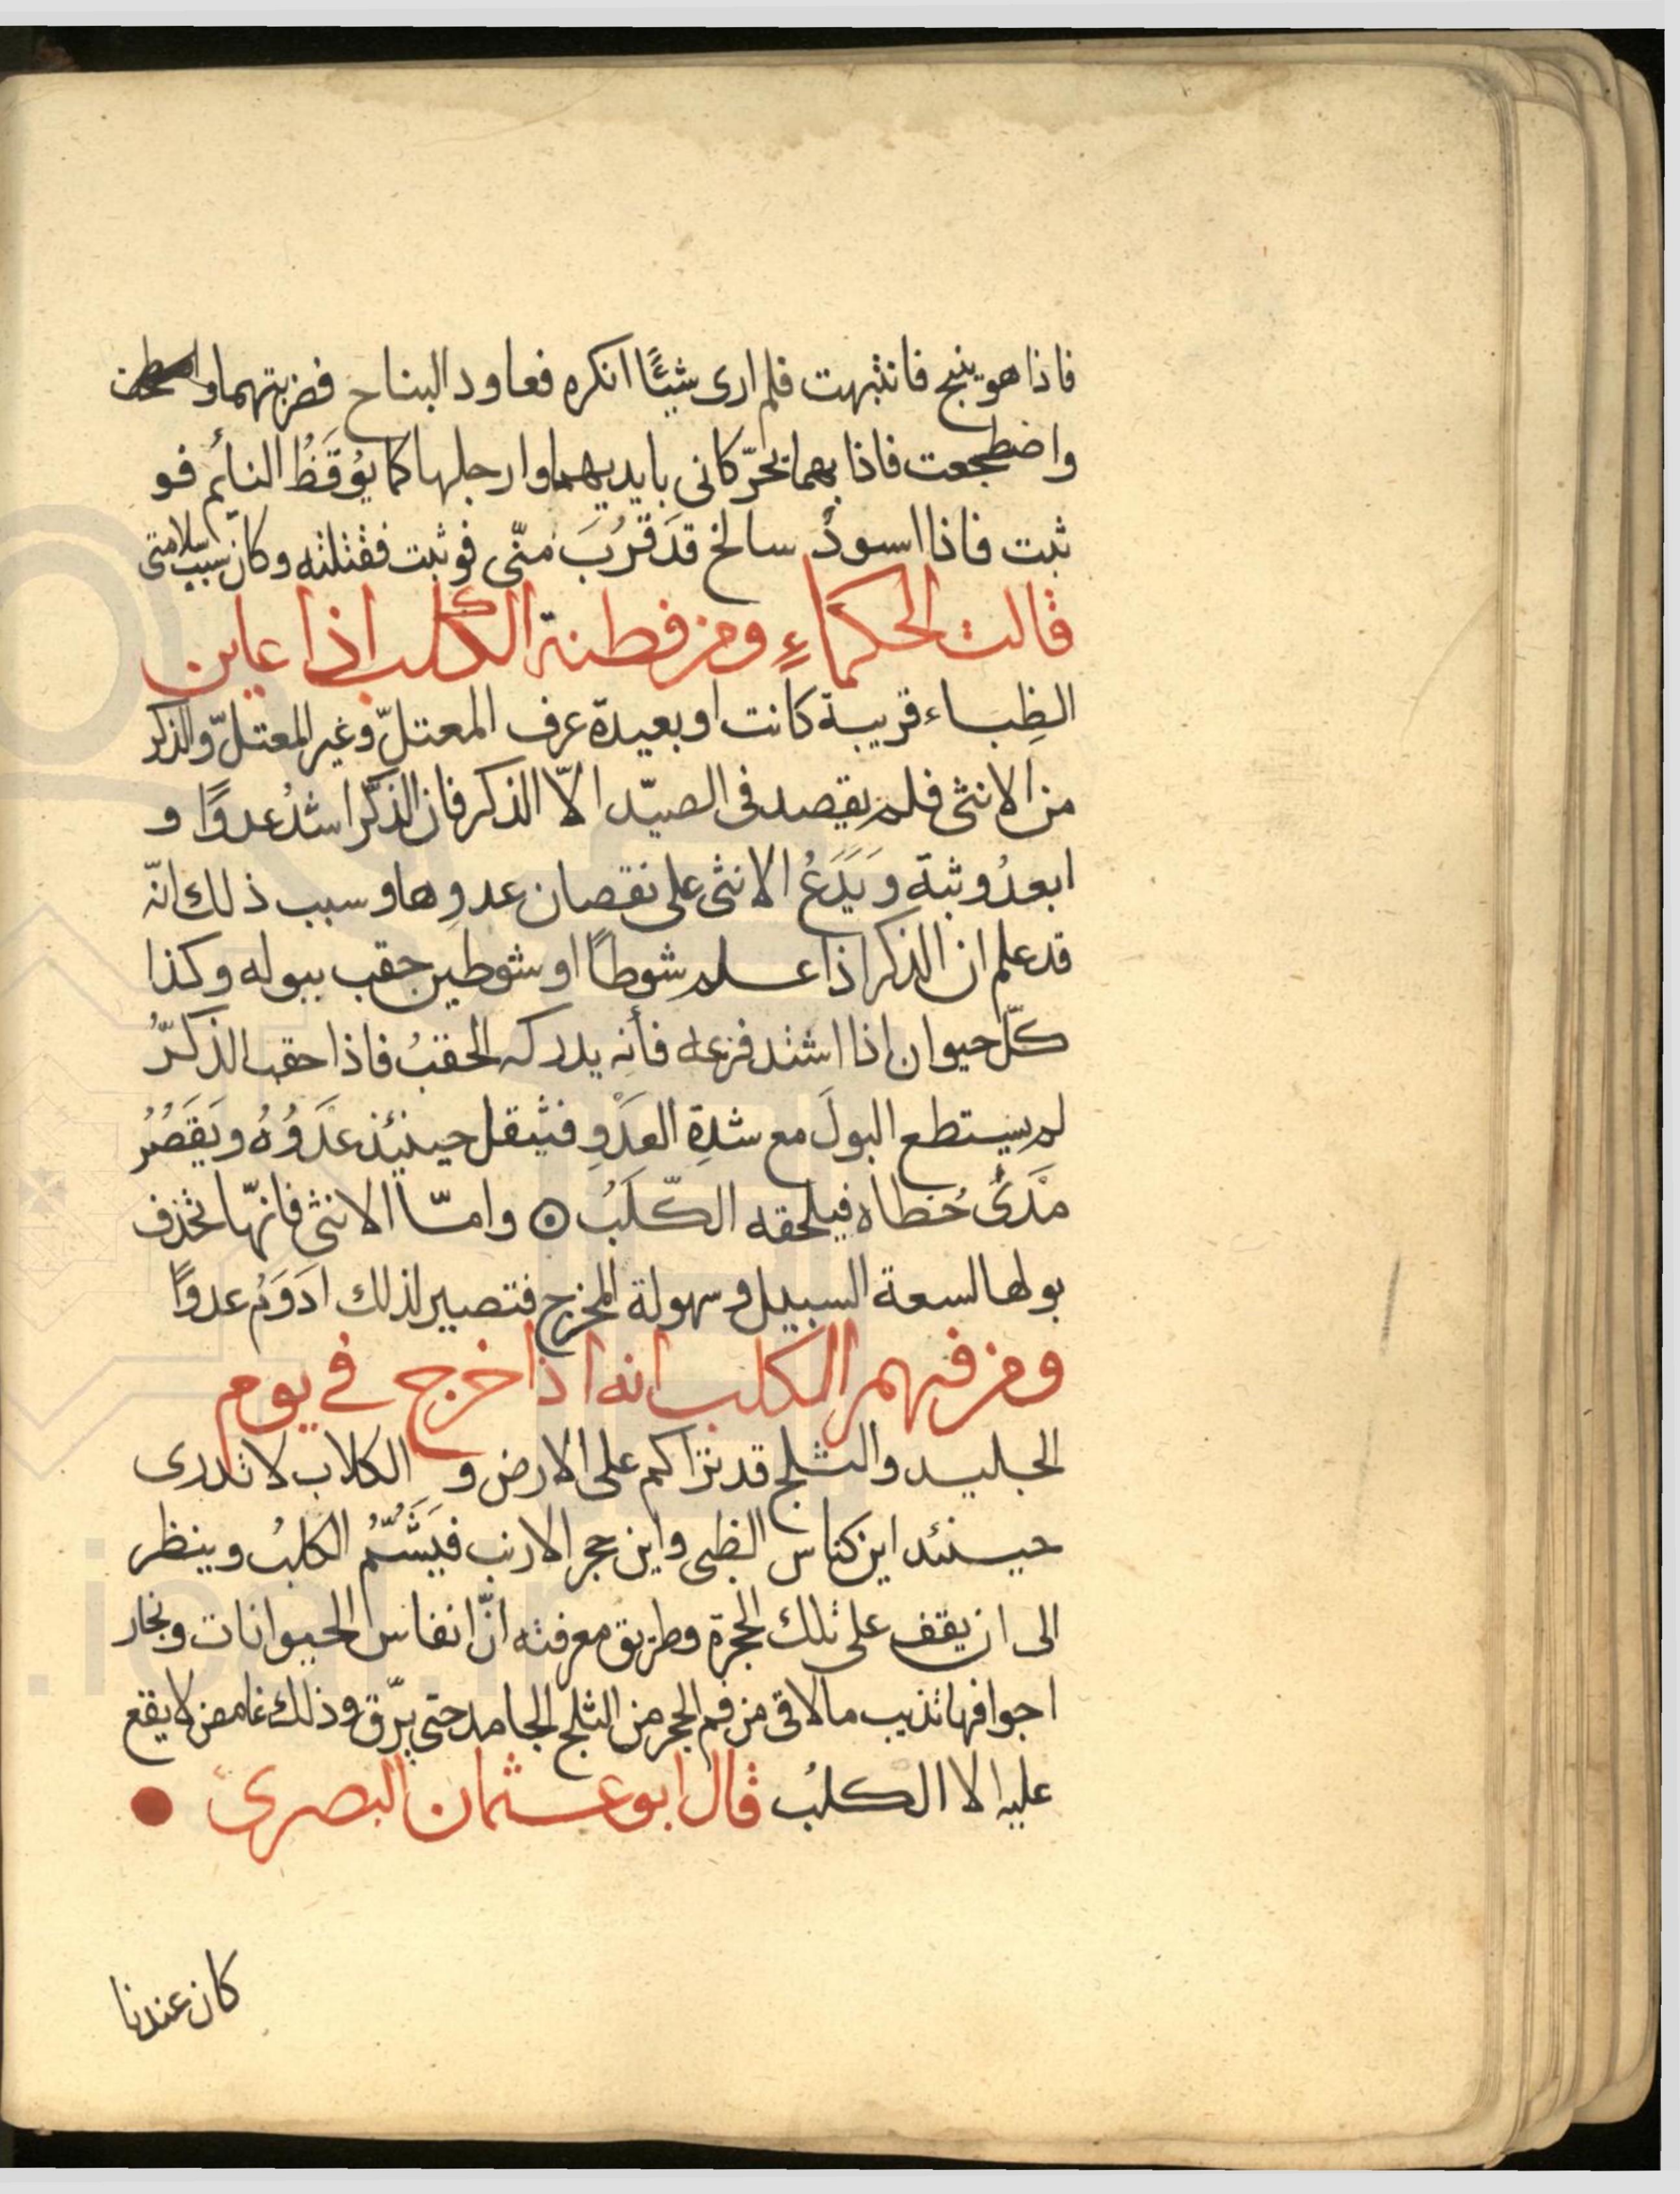 فاذا هو ينبح فانتبهت فلم ارى شيئًا انكره فعاود البناح فضربتهما و
واضطجعت فاذا بهما تحرّكانى بايديهما وارجلها كما يُوقَظُ النائم فو
ثبت فاذا اسودُ سالخ قد قَرُبَ منّى فوثبت فقتلته وكان سبب سلامتى
قالت الحكماءِ ومن فطنة الكلب اذا عاين
الظِباء قريبة كانت او بعيدة عرف المعتلّ وغير المعتلّ والذكر
من الانثى فلم يقصد فى الصيّد الّا الذكر فان الذكَر اشدُ عدوًا و
ابعدُ وثبة ويَدَعُ الانثى على نقصان عدوِها وسبب ذلك انّه
قد علم ان الذكر اذا علم شوطًا او شوطين حقب ببوله وكذا
كلّ حيوان اذا اشتد فزعه فأنه يدركه الحقبُ فاذا حقب الذكرُ
لم يستطع البولَ مع شدةِ العَدْوِ فيثقل حينئذ عَدْوُهُ ويَقَصُرُ
مَدَىُ خُطاه فيلحقه الكّلَبُ ۞ وامّا الانثى فانّها تحذف
بولها لسعة السبيل وسهولة المخرج فتصير لذلك ادَوَمُ عدوًا
ومن فهم الكلب انه اذا خرج في يوم
الجليد والثلج قد تراكم على الارض و الكلاب لا تدرى
حينئد اين كناس الظبى واين حجر الارنب فيَشَّمُّ الكلبُ وينظر
الى ان يقف على تلك الحجرة وطريق معرفته انّ انفاس الحيوانات وبخار
اجوافها تذيب ما لاقى من فم الحجر من الثلج الجامد حتى يرّق وذلك غامض لا يقع
عليه الا الكلبُ قال ابو عثمان البصرى
كان عندنا